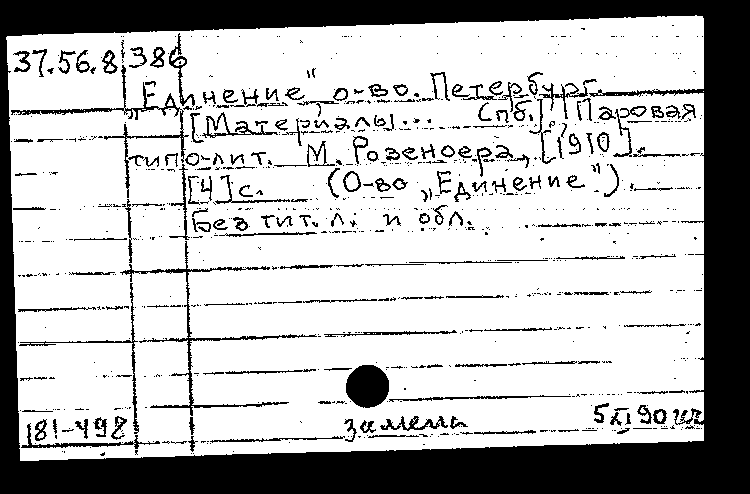 37.56.8.386
„Единение" о-во. Петербург.
[Материалы... Спб.], Паровая
типо-лит. М. Розеноера, [1910].
[4]с. (О-во „Единение").
Без тит. л. и обл.
181-498
5 XI 90